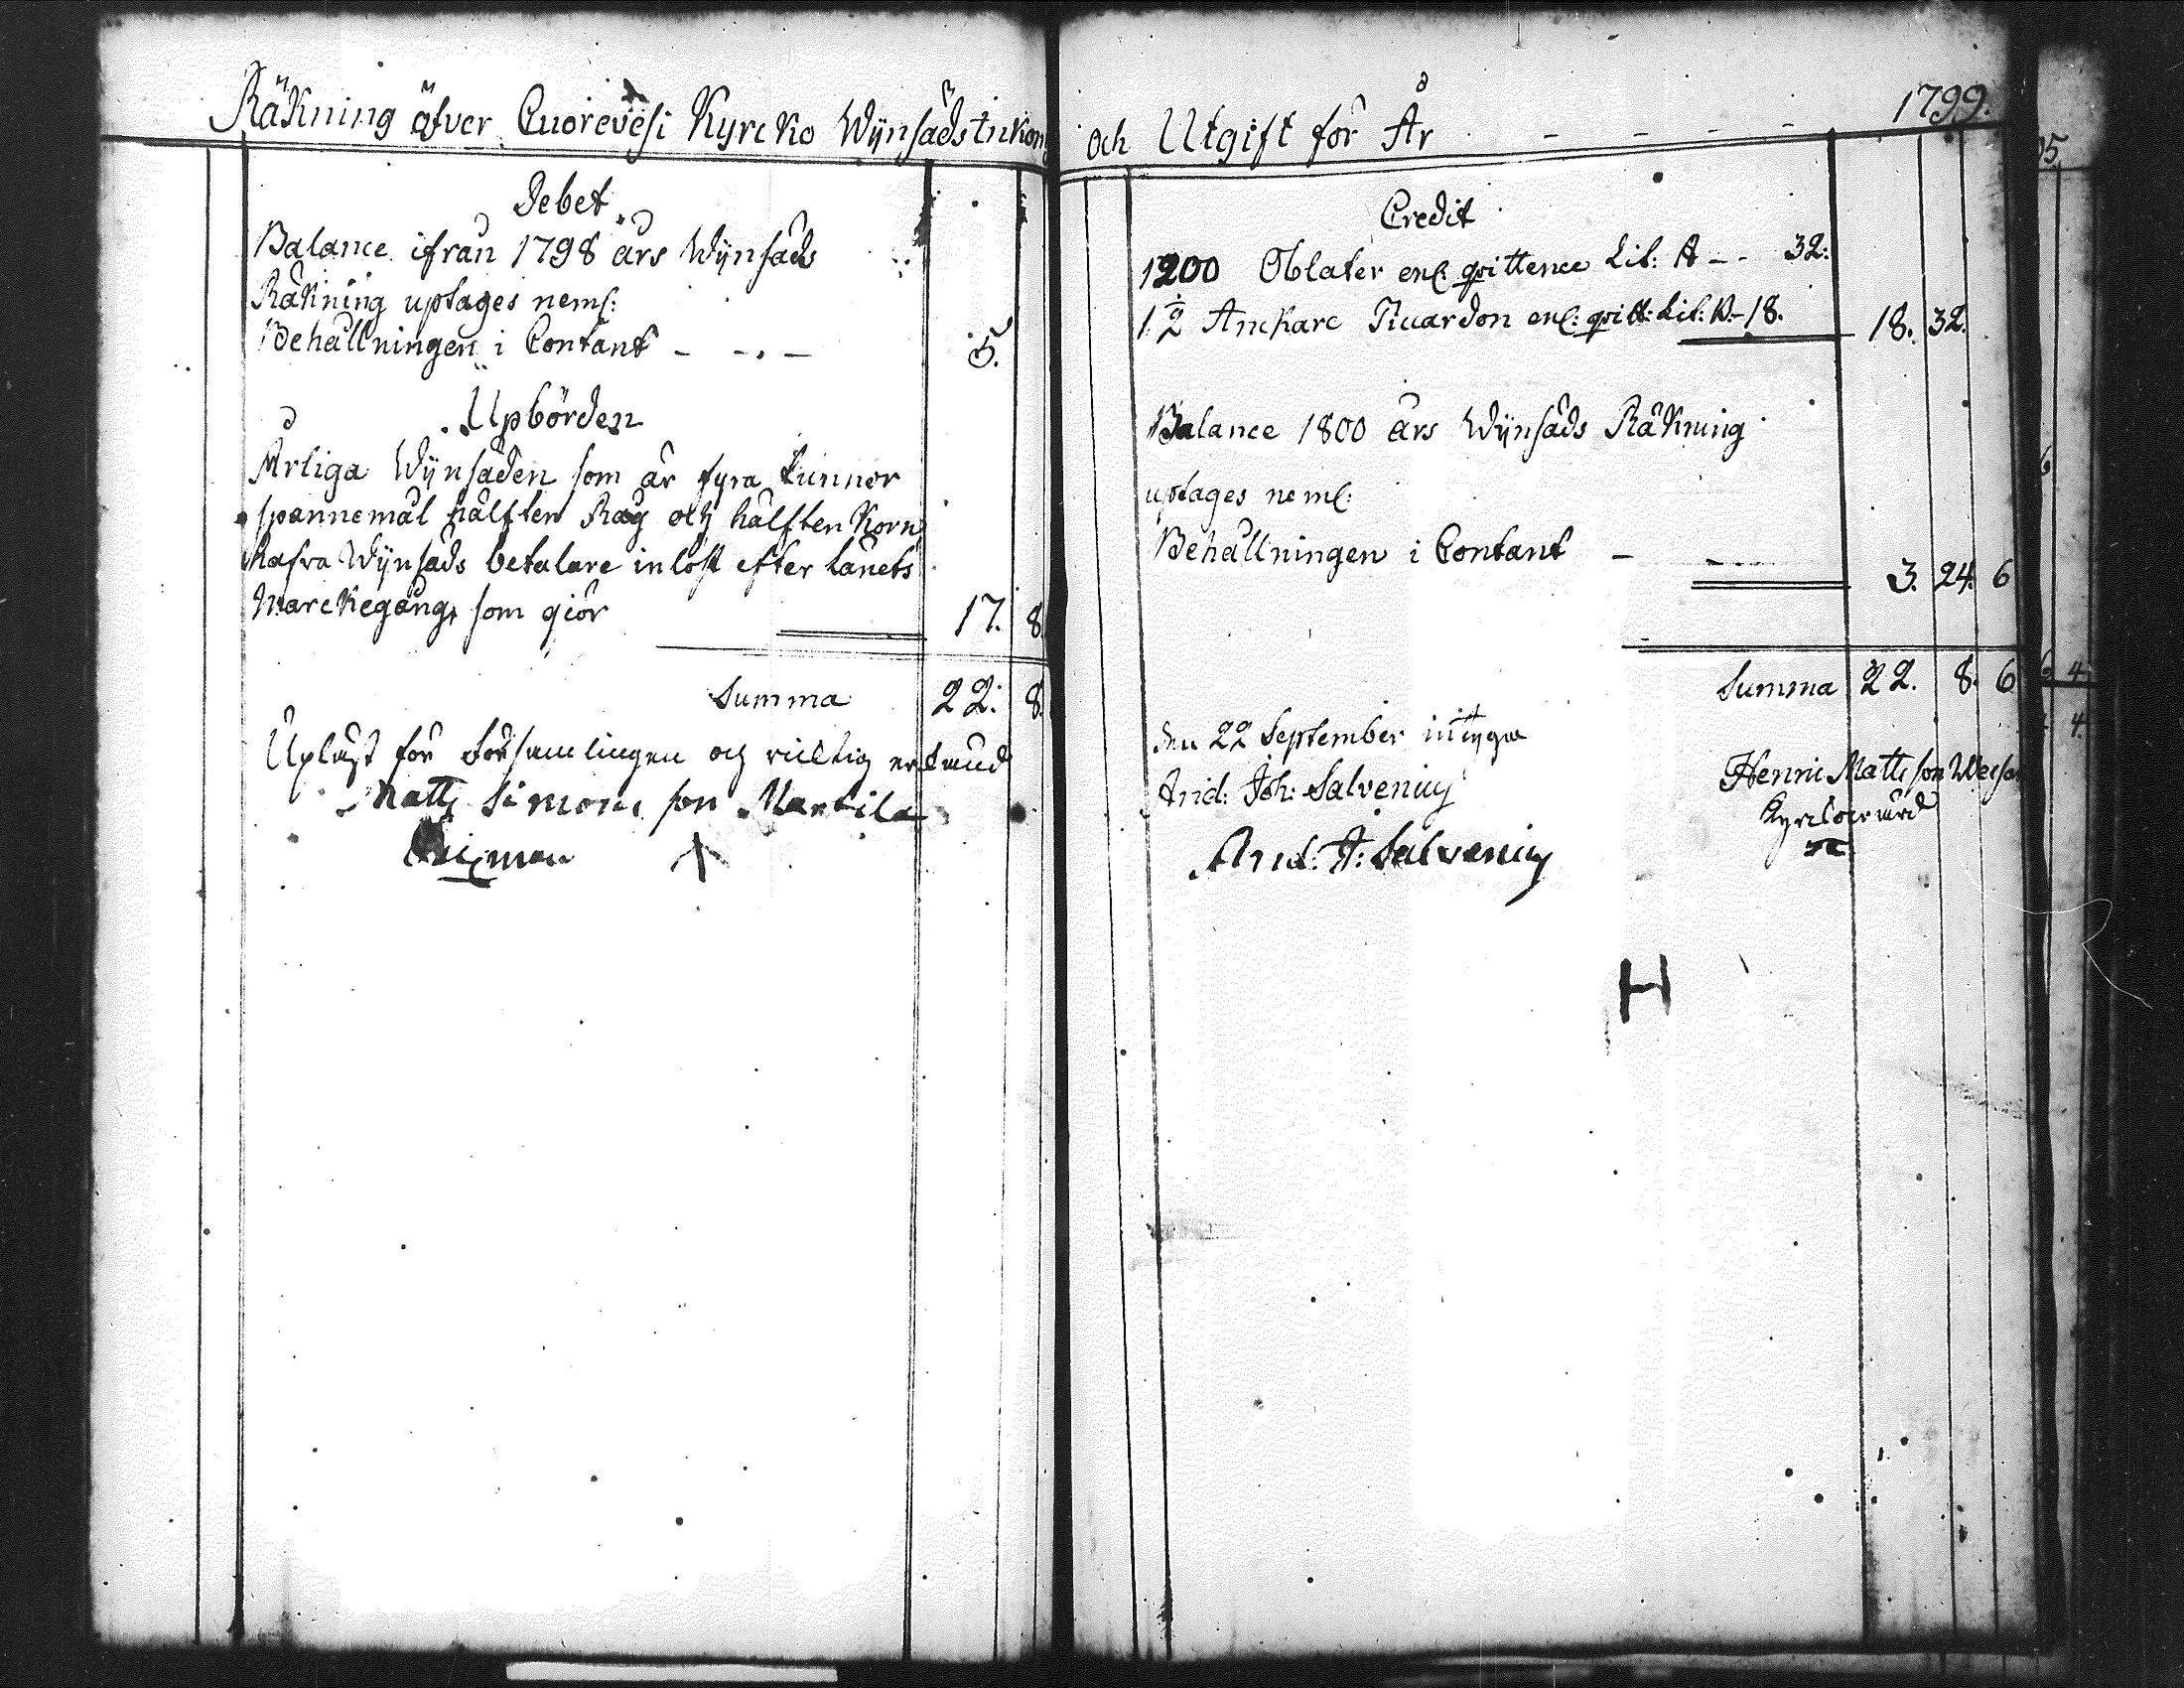 Räkning öfver Quorevesi Kyrcko Wijnsäds Inkom
Debet
Balance ifrån 1798 års Wijnsäds
Räkning uptages neml:
Behållningen i Contant - - . - 5.
Upbörden
Årliga Wijnsäden som är fyra tunnor
spannemål hälften Råg och hälften Korn
hafva Wijnsäds betalare inlöst efter länets
Marckegång, som giör 17. 8.
Summa 22: 8.
Upläst för Församlingen och richtig erkänd
Matts Simons son Martila
Sexman
och Utgift för År - - - - 1799.
Credit
1200 Oblater enl: qvittence Lit: A - - 32:
1 1/2 Anckare Picardon enl: qvitt: Lit: B - 18. 18. 32.
Balance 1800 års Wijnsäds Räkning
uptages neml:
Behållningen i Contant - - 3. 24. 6
Summa 22. 8. 6
den 22 September intyga
And: Joh: Salvenius
Henric Matts son
Kyrckovärd
And: A: Salvenius
H